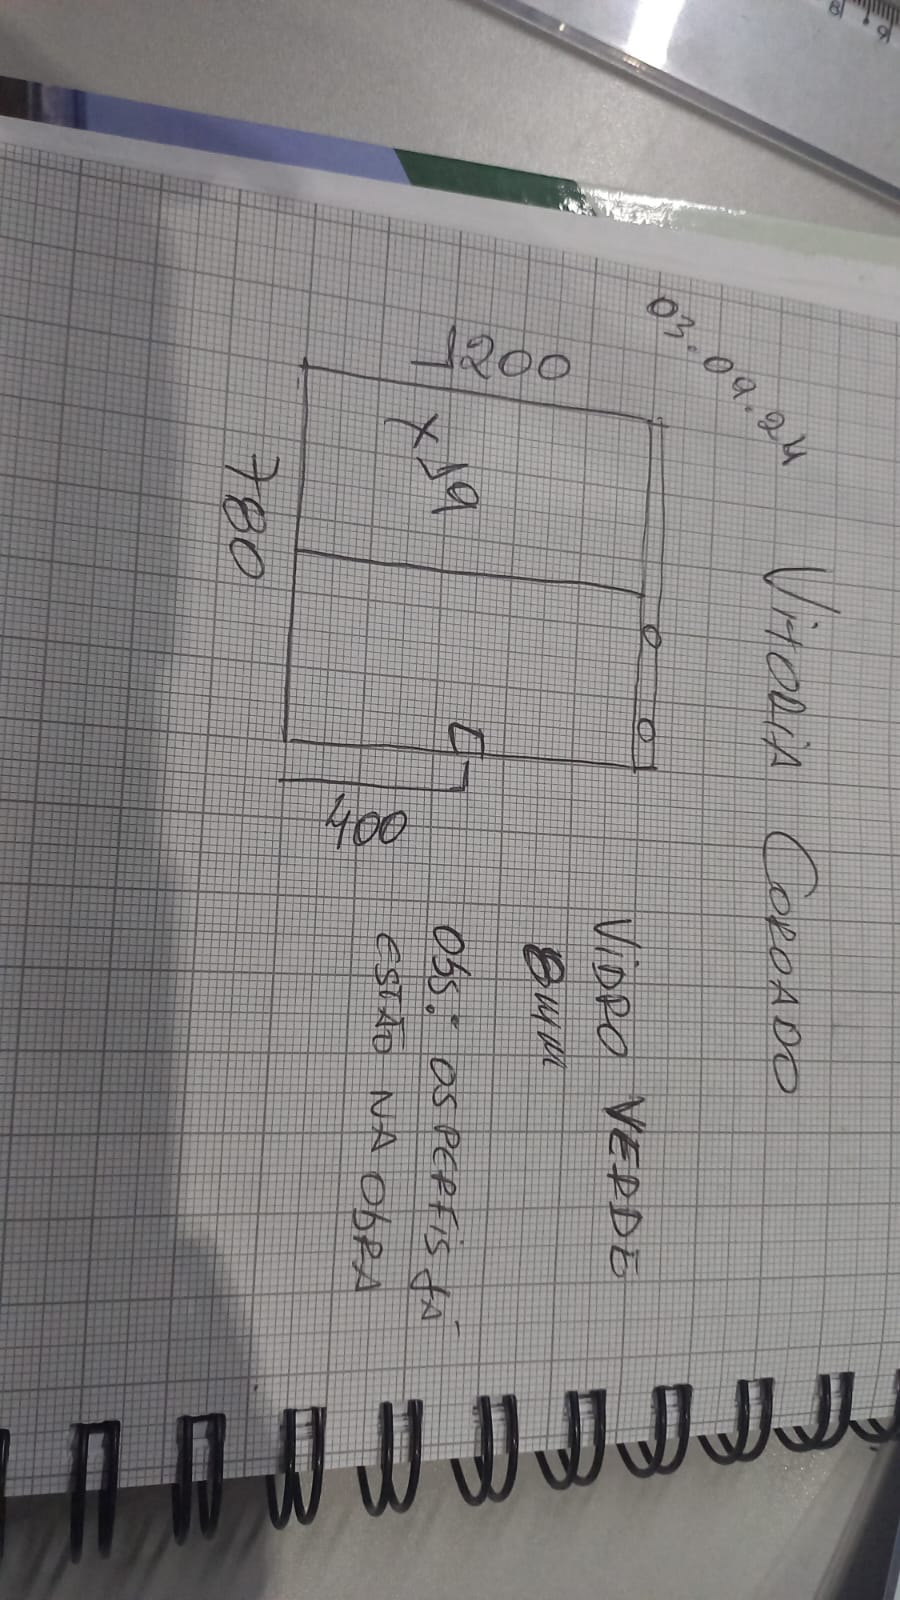 03.09.24
VitORIA COROADO
1200
X 19
780
400
VIDRO VERDE
8mm
Obs: OS PERFIS JÁ
ESTÃO NA ObRA